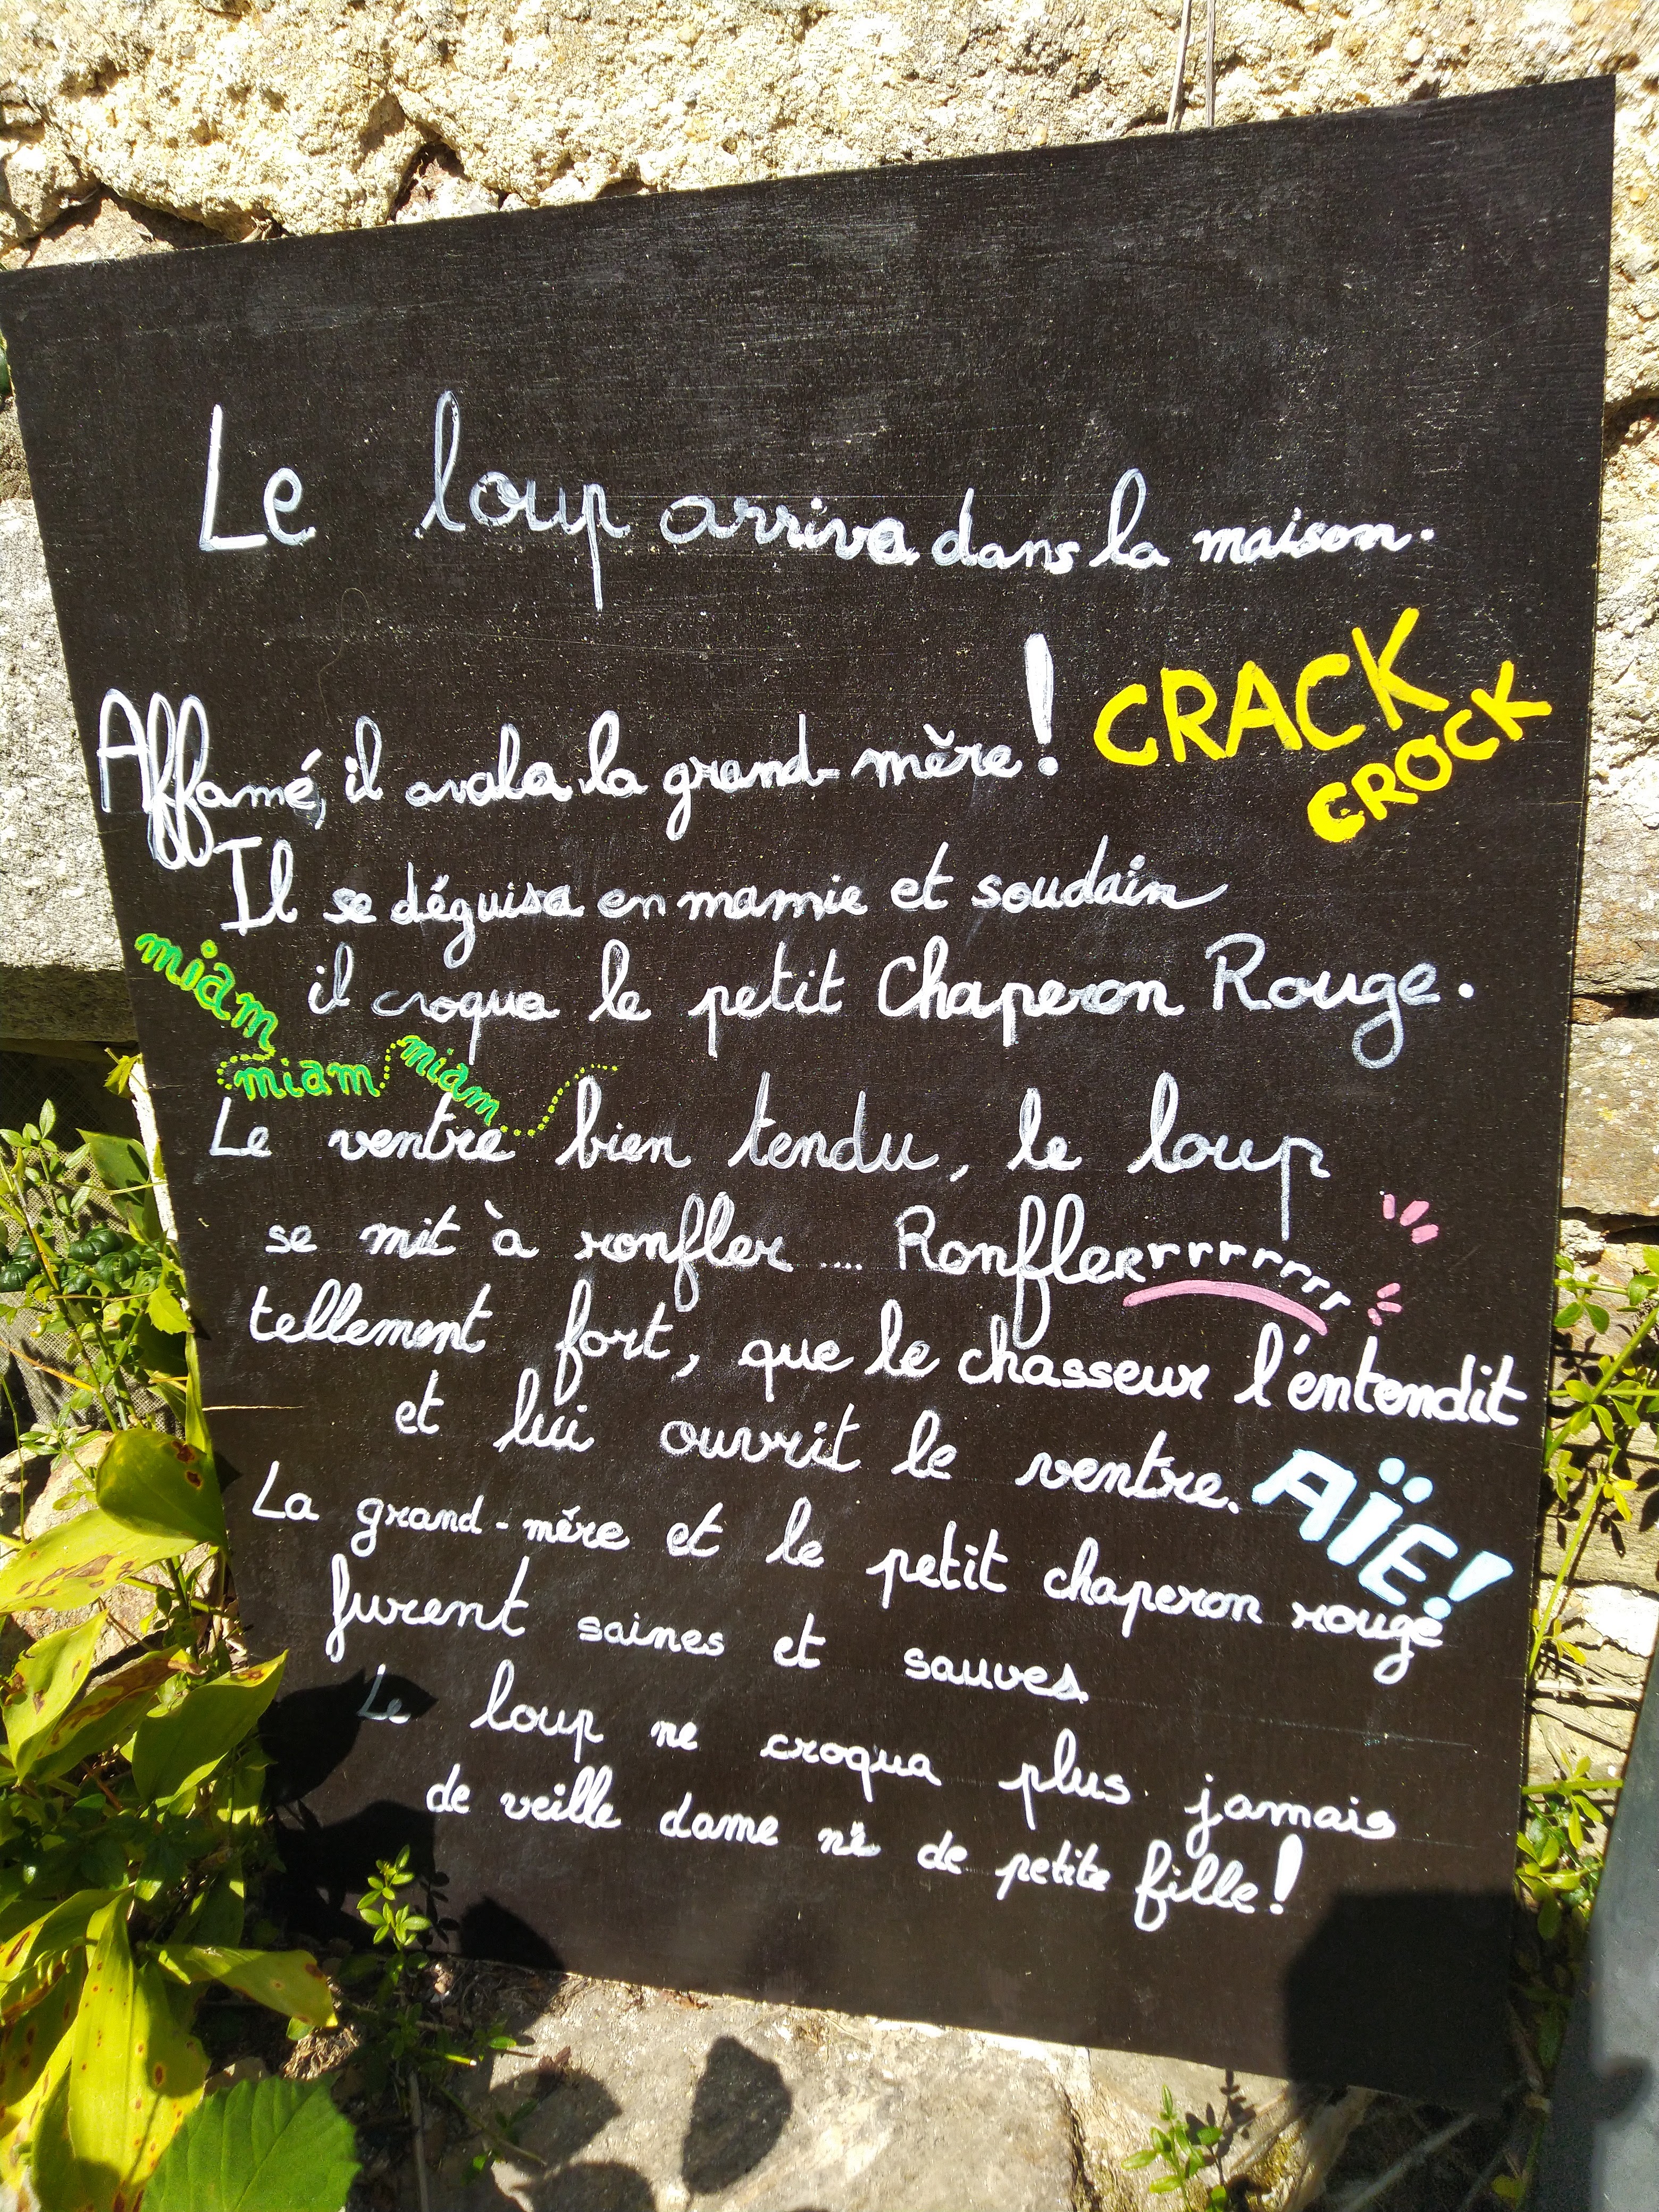 Le loup arriva dans la maison.
Affamé, il avala la grand-mère! CRACK
CROCK
Il se déguisa en mamie et soudain
il croqua le petit Chaperon Rouge.
miam
miam miam
Le ventre bien tendu, le loup
se mit à ronfler .... Ronflerrrrrrrr
tellement fort, que le chasseur l'entendit
et lui ouvrit le ventre. AÏE!
La grand-mére et le petit chaperon rouge
furent saines et sauves
Le loup ne croqua plus jamais
de veille dame ni de petite fille!